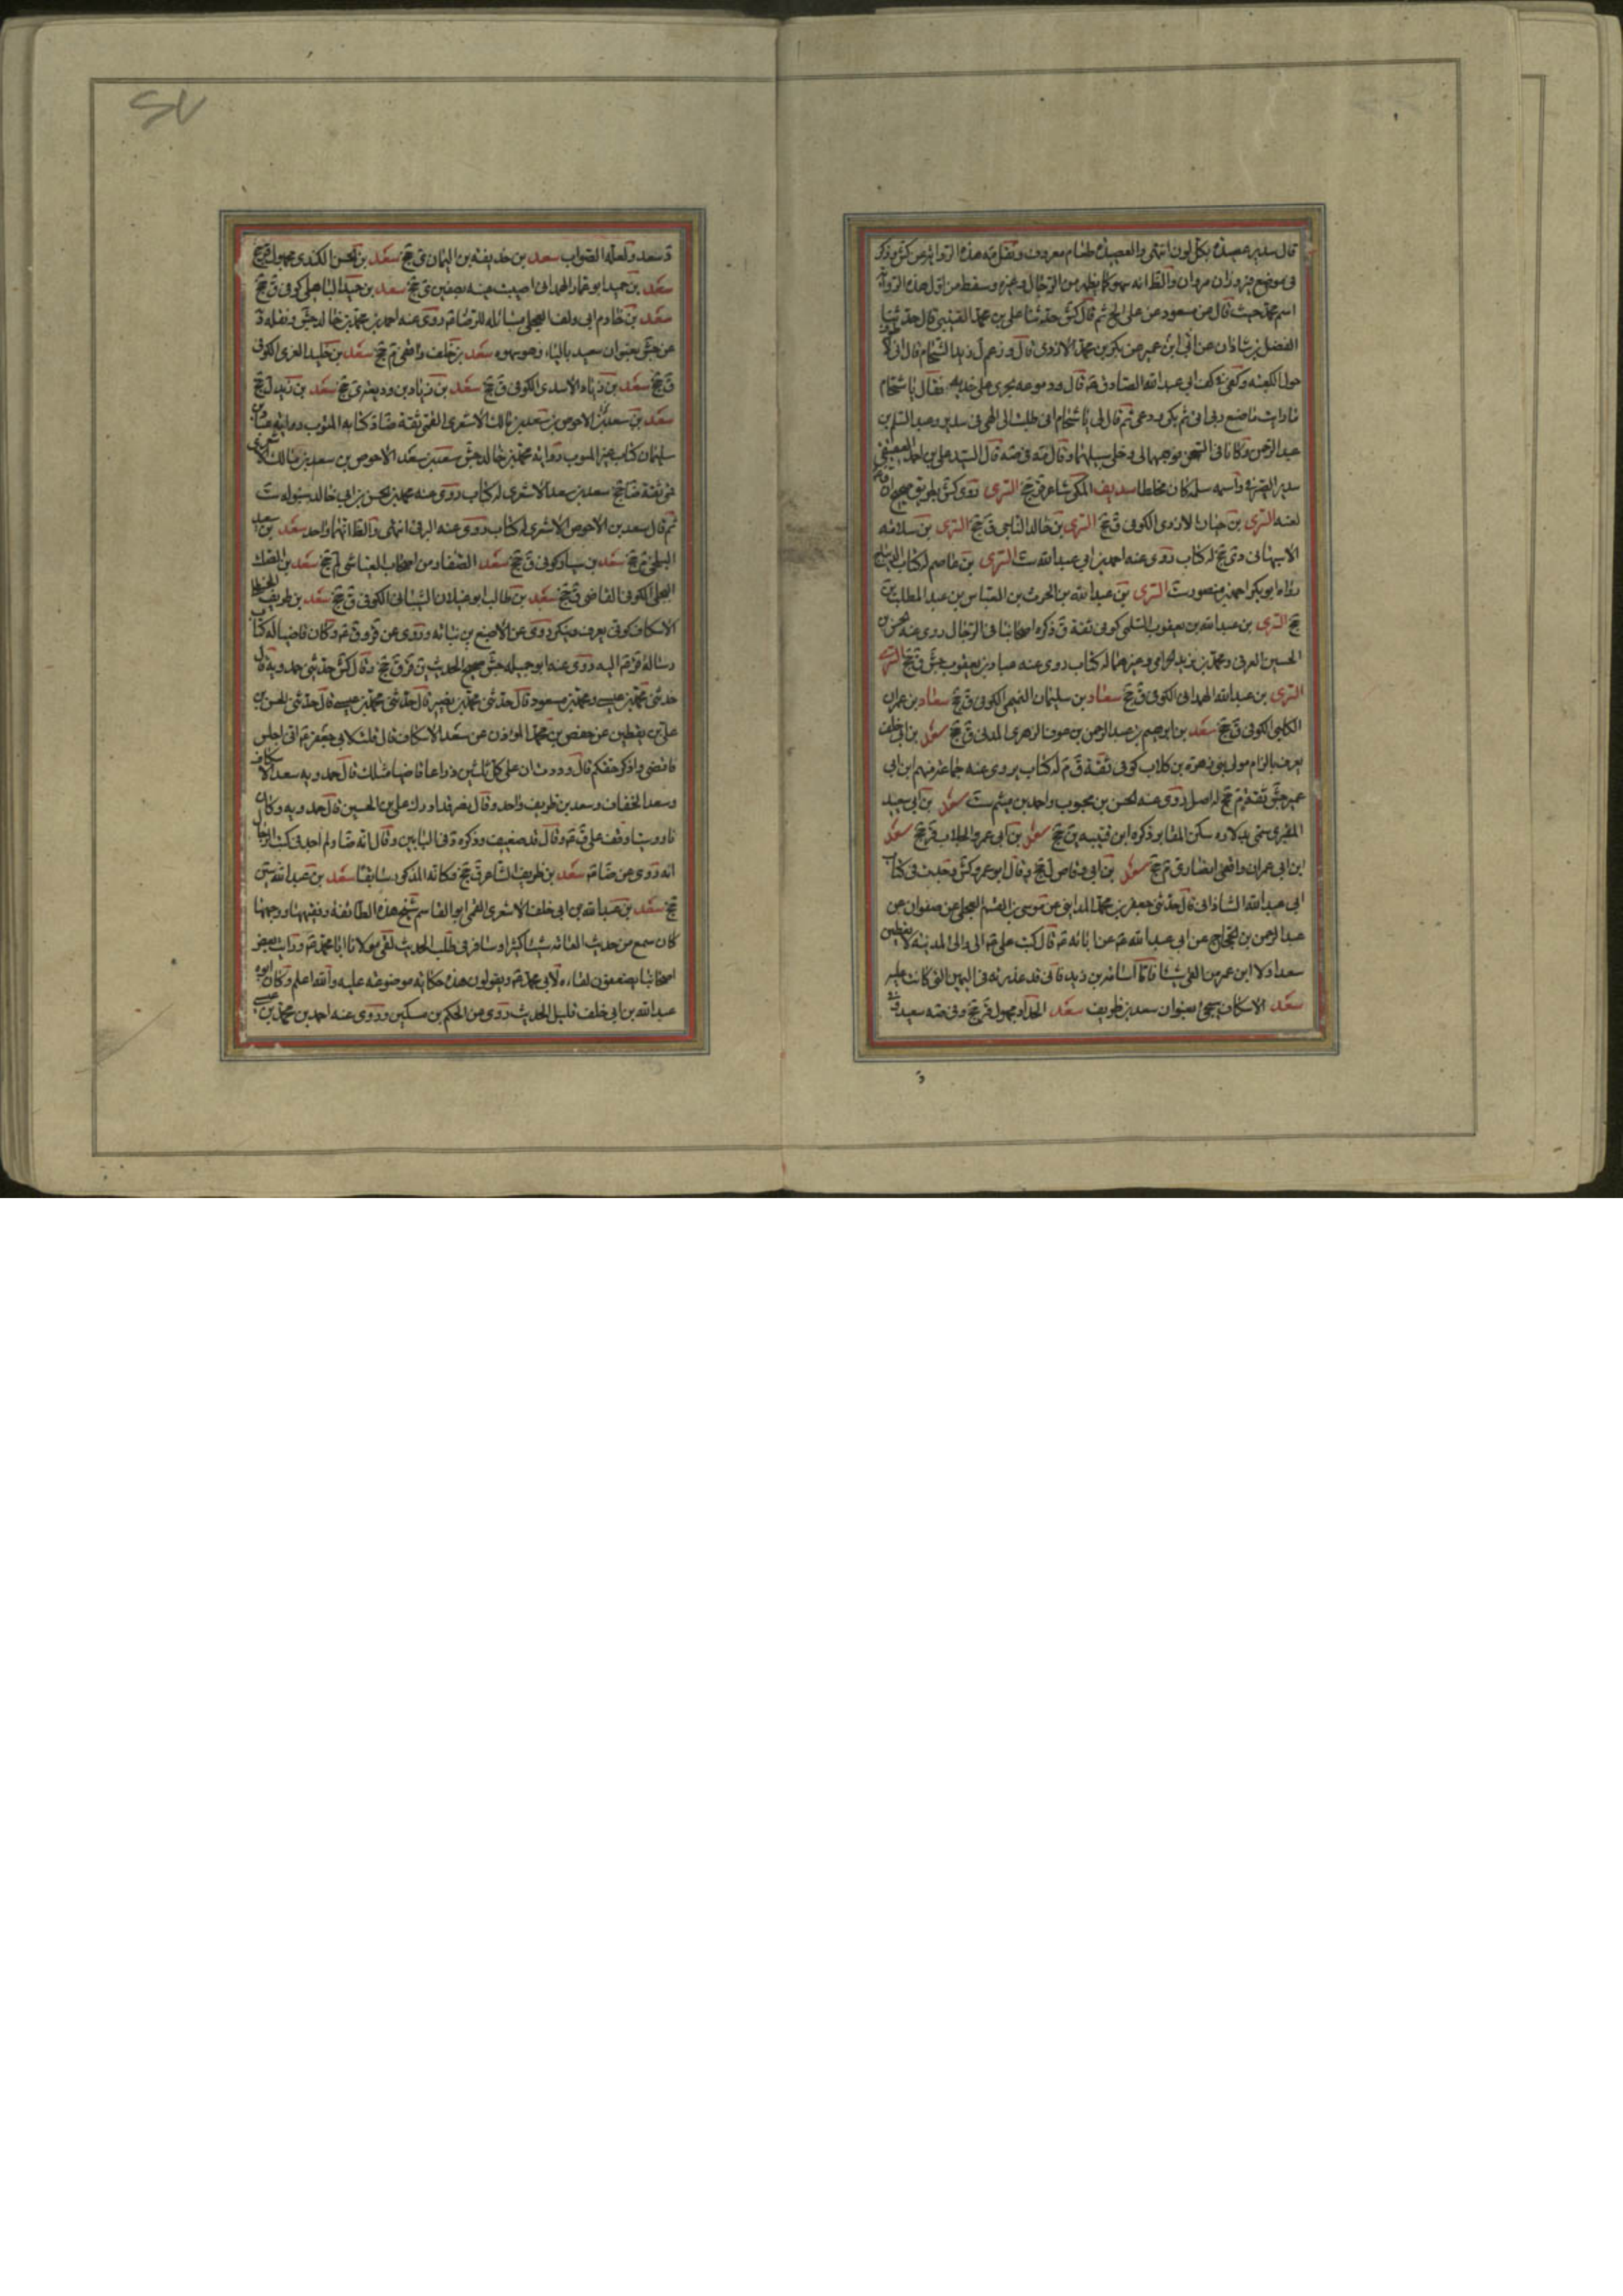 قال سدير عصيدة بكل لون انتهى والعصيدة طعام معروف ونقل مه هذه الرواية من كش وذكر
في موضع مروان والظ انه سهو كما يظهر من الرجال وغيره وسقط من اول هذه الرواية
اسم محمد حيث قال ابن مسعود عن علي الخ ثم قال كش حدثنا علي بن محمد القتيبي قال حدثنا
الفضل بن شاذان عن ابي ابن عمير عن بكر بن محمد الازدي قال وزعم لي زيد الشحام قال اني لاطوف
حول الكعبة وكفي في كف ابي عبد الله الصادق قال ودموعه تجري على خديه فقال يا شحام
ما رايت ما صنع ربي الي ثم بكى ودعى ثم قال لي يا شحام اني طلبت الى الهي في سدير وعبد السلام بن
عبد الرحمن وكانا في السجن فوهبهما لي وخلى سبيلهما وقال السيد علي بن احمد العقيقي
سدير الصيرفي واسمه سلمة كان مخلطا سديف المكي شاعر قر جخ السري روى كش بطريق صحيح
لعنه السري بن حيان الازدي الكوفي ق جخ السري بن خالد الناجي ق جخ السري بن سلامة
الاصبهاني دي جخ له كتاب روى عنه احمد بن ابي عبد الله ست السري بن عاصم له كتاب الديباج
رواه ابو بكر احمد بن منصور ست السري بن عبد الله بن الحرث بن العباس بن عبد المطلب ين
جخ السري بن عبد الله بن يعقوب السلمي كوفي ثقة ق ذكره اصحابنا في الرجال روى عنه الحسن بن
الحسين العرني ومحمد بن يزيد الحرامي وغيرهما له كتاب روى عنه عباد بن يعقوب جش ق جخ
السري بن عبد الله الهمداني الكوفي ق جخ سعاد بن سليمان التميمي الكوفي ق جخ سعاد بن عمران
الكلبي الكوفي ق جخ سعد بن ابراهيم بن عبد الرحمن بن عوف الزهري المدني ق جخ سعد بن ابي خلف
يعرف بالزام مولى بني زهرة بن كلاب كوفي ثقة ق م له كتاب يرويه عنه جماعة منهم ابن ابي
عمير جش ثقة م جخ له اصل روى عنه الحسن بن محبوب واحمد بن ميثم ست سعد بن ابي سعيد
المقبري سمي بذلك لانه سكن المقابر ذكره ابن قتيبة ين جخ سعد بن ابي عمرو الجلاب قر جخ سعد
ابن ابي عمران واقفي انصاري م جخ سعد بن ابي وقاص ل جخ وقال ابو عمرو كش وجدت في كتاب
ابي عبد الله الشاذاني قال حدثني جعفر بن محمد المدايني عن موسى بن القسم العجلي عن صفوان عن
عبد الرحمن بن الحجاج عن ابي عبد الله عن ابائه قال كتب علي الى والي المدينة لا تعطين
سعدا ولا ابن عمر من الفئ شيئا فاما اسامة بن زيد فاني قد عذرته في اليمين التي كانت عليه
سعد الاسكاف يجئ بعنوان سعد بن طريف سعد الحداد مجهول قر جخ وفي صه سعيد
د سعد ولعله الصواب سعد بن حذيفة بن اليمان ي جخ سعد بن الحسن الكندي مجهول قر جخ
سعد بن حميد ابو عمار الهمداني اصيب عينه بصفين ي جخ سعد بن حميد الباهلي كوفي ق جخ
سعد بن خادم ابي دلف العجلي مسائله للرضا روى عنه احمد بن محمد بن خالد جش ونقله د
عن جش بعنوان سعيد بالياء وهو سهو سعد بن خلف واقفي م جخ سعد بن خليد الغزي الكوفي
ق جخ سعد بن زياد الاسدي الكوفي ق جخ سعد بن زياد بن وديعة ي جخ سعد بن زيد ل جخ
سعد بن سعد بن الاحوص بن سعد بن مالك الاشعري القمي ثقة ضا د كتابه المبوب رواية عباد بن
سليمان كتاب غير المبوب رواية محمد بن خالد جش سعد بن سعد الاحوص بن سعد بن مالك الاشعري
قمي ثقة ضا جخ سعد بن سعد الاشعري له كتاب روى عنه محمد بن الحسن بن ابي خالد شنبولة ست
ثم قال سعد بن الاحوص الاشعري له كتاب روى عنه البرقي انتهى والظ انهما واحد سعد بن سعيد
البلخي م جخ سعد بن سياد كوفي ق جخ سعد الصفار من اصحاب العياشي لم جخ سعد بن الصلت
البجلي الكوفي القاضي ق جخ سعد بن طالب ابو غيلان الشيباني الكوفي ق جخ سعد بن طريف الحنظلي
الاسكاف كوفي يعرف وينكر روى عن الاصبغ بن نباتة وروى عن قر وق وكان قاضيا له كتاب
رسالة قر اليه روى عنه ابو جميلة جش صحيح الحديث ين قر ق جخ وقال كش حدثني حمدويه قال
حدثني محمد بن عيسى ومحمد بن مسعود قال حدثني محمد بن نصير قال حدثني محمد بن عيسى قال حدثني الحسن بن
علي بن يقطين عن حفص بن محمد المؤذن عن سعد الاسكاف قال قلت لابي جعفر اني اجلس
فاقص واذكر حقكم قال وددت ان على كل ثلثين ذراعا قاصا مثلك قال حمدويه سعد الاسكاف
وسعد الخفاف وسعد بن طريف واحد وقال نصر قد ادرك علي بن الحسين قال حمدويه وكان
ناووسيا وقف على ق وقال غض ضعيف وذكره د في البابين وقال انه ضا ولم اجد في كتب الرجال
انه روى عن ضا سعد بن ظريف الشاعر ق جخ فكانه المذكور سابقا سعد بن عبد الله سين
جخ سعد بن عبد الله بن ابي خلف الاشعري القمي ابو القاسم شيخ هذه الطائفة وفقيهها ووجهها
كان سمع من حديث العامة شيئا كثيرا وسافر في طلب الحديث لقي مولانا ابا محمد ورايت بعض
اصحابنا يضعفون لقاءه لابي محمد ويقولون هذه حكاية موضوعة عليه والله اعلم وكان ابوه
عبد الله بن ابي خلف قليل الحديث روى عن الحكم بن مسكين وروى عنه احمد بن محمد بن عيسى